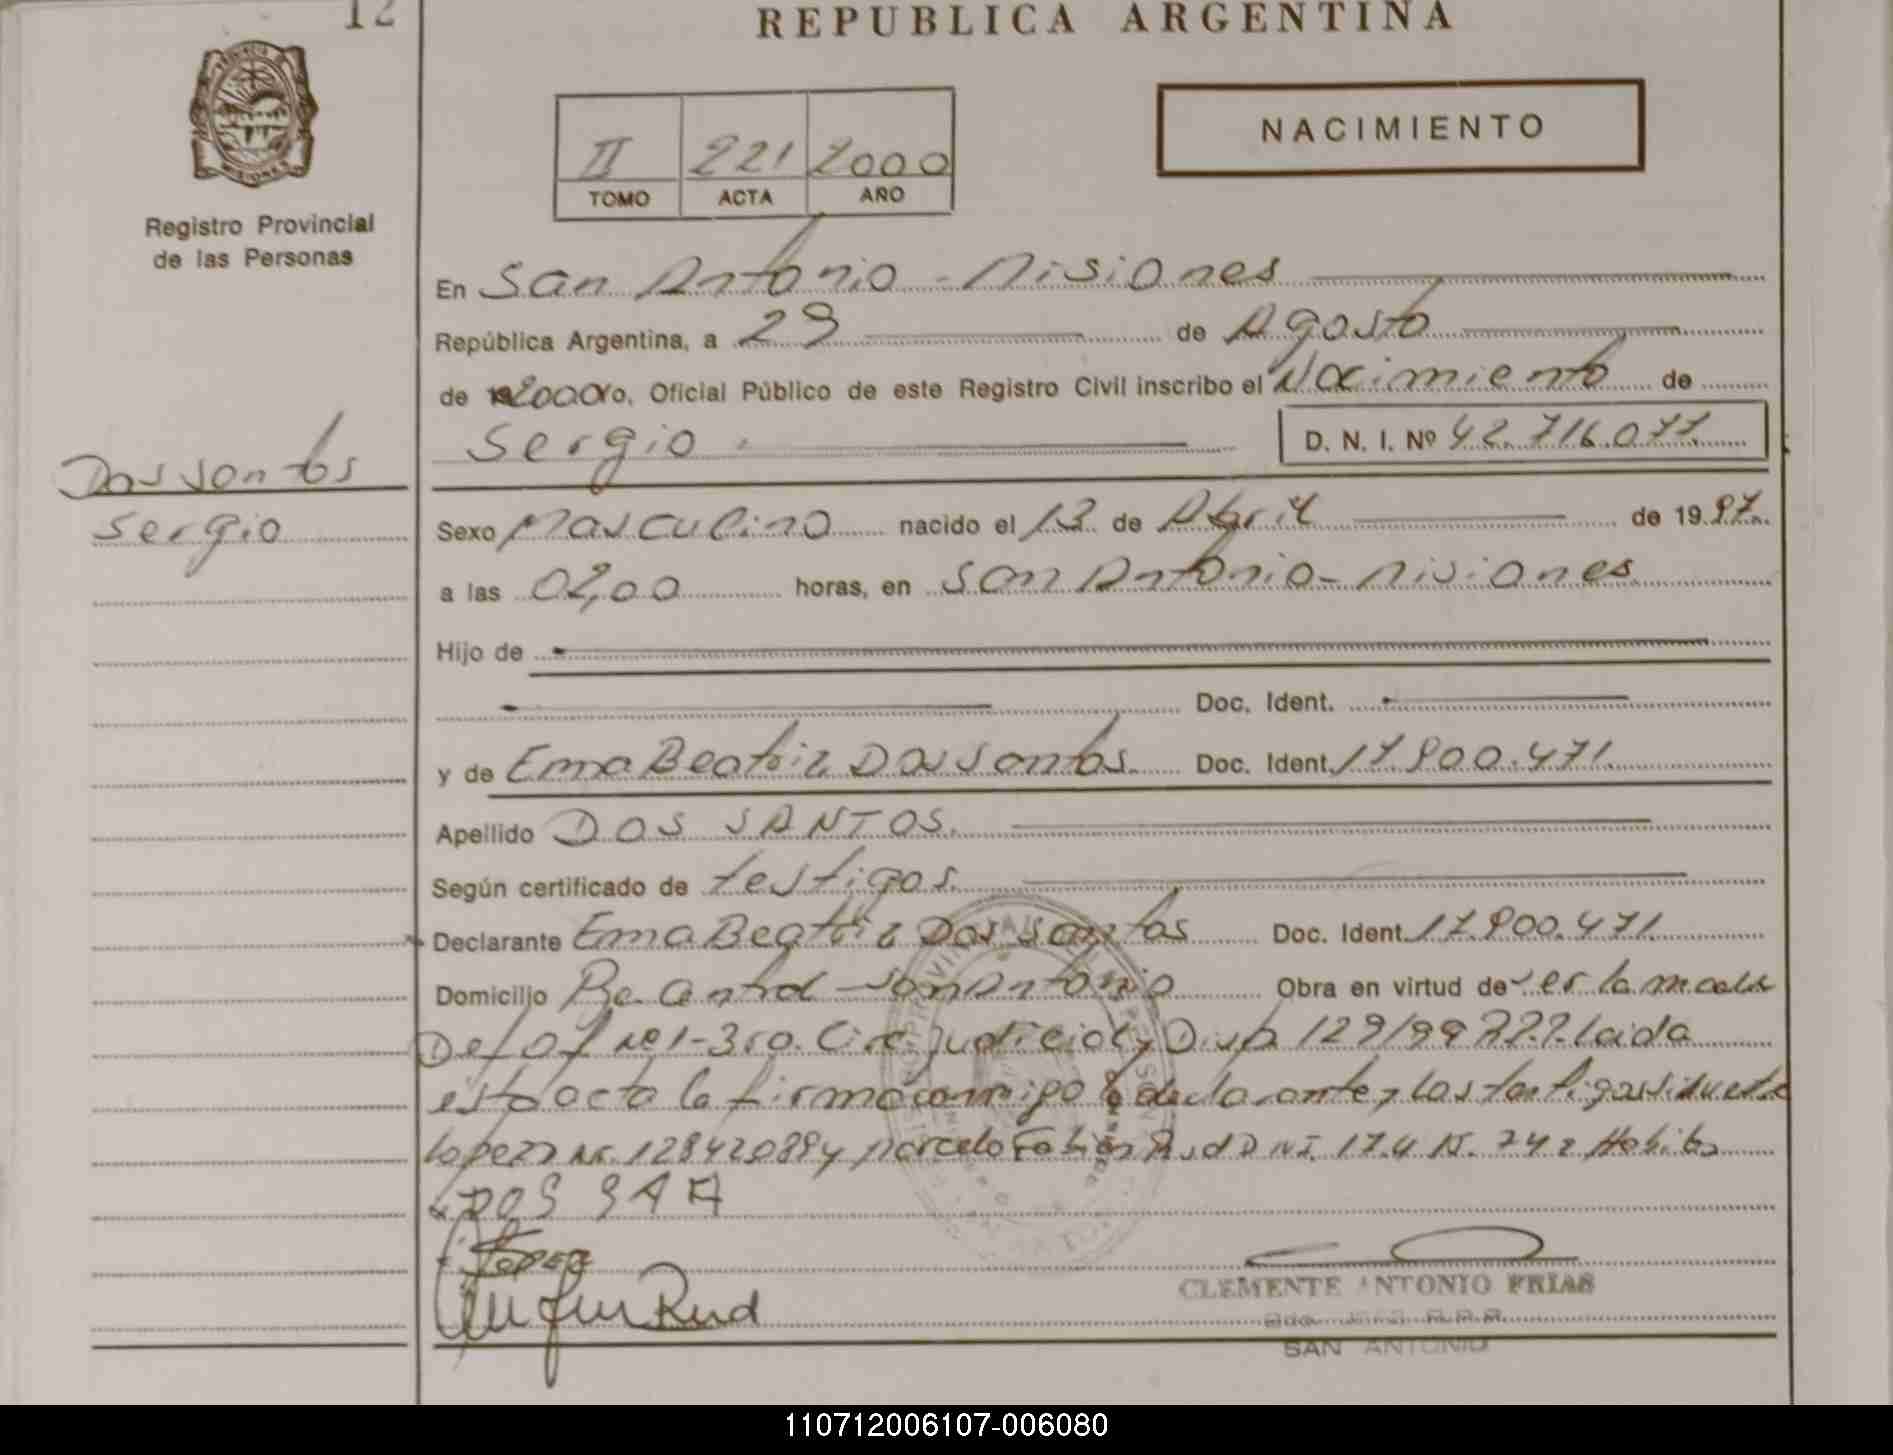 12
REPUBLICA ARGENTINA
PROVINCIA
MISIONES
Registro Provincial
de las Personas
II 221 2000
TOMO ACTA AÑO
NACIMIENTO
En San Antonio - Misiones
República Argentina, a 29 de Agosto
de 2000 Yo, Oficial Público de este Registro Civil inscribo el Nacimiento de
Sergio D. N. I. Nº 42.716.077
Dos santos
Sergio
Sexo Masculino nacido el 13 de Abril de 1997
a las 02,00 horas, en San Antonio - Misiones
Hijo de
Doc. Ident.
y de Ema Beatriz Dos Santos. Doc. Ident. 17.900.471.
Apellido DOS SANTOS.
Según certificado de testigos.
Declarante Ema Beatriz Dos santos Doc. Ident. 17.900.471.
Domicilio Bº Central - San Antonio Obra en virtud de ser la madre
Def. Of. Nº 1 - 3ro. Circ. judicial y Disp. 129/99 Leida
esta acta la firma conmigo la declarante y los testigos
Lopez y Marcelo Fabian Rud DNI. 17.4
DOS SAA
Lopez
Rud
CLEMENTE ANTONIO FRIAS
SAN ANTONIO
110712006107-006080